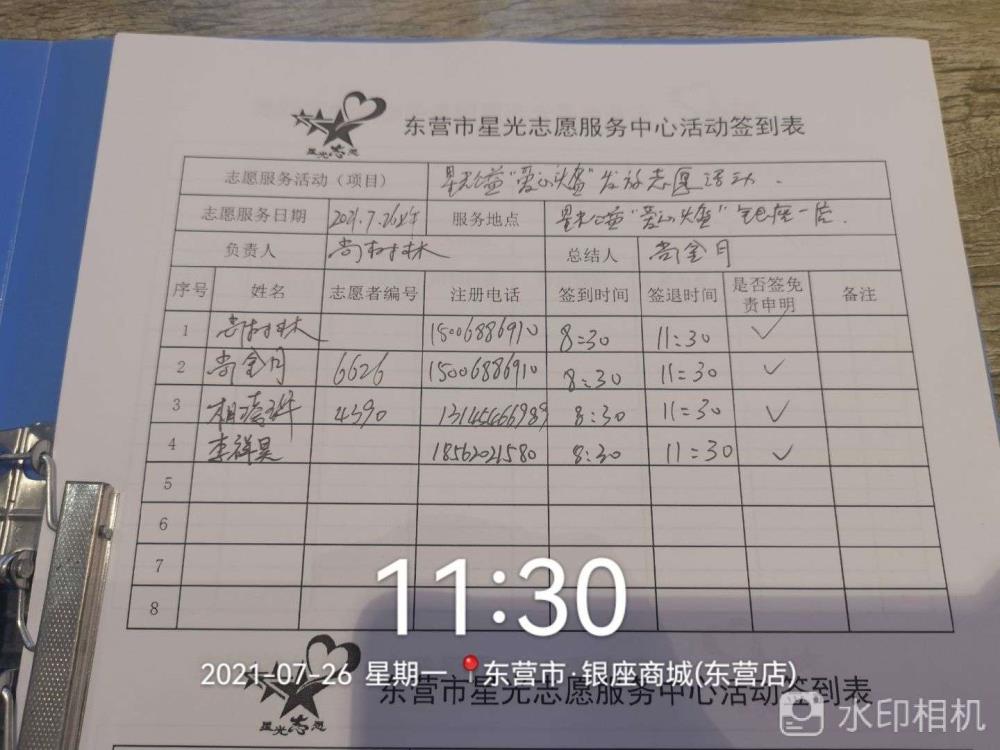 星光志愿
东营市星光志愿服务中心活动签到表
志愿服务活动（项目） 星光公益“爱心头盔”发放志愿活动.
志愿服务日期 2021.7.26上午 服务地点 星光公益“爱心头盔”银座一店.
负责人 尚树林 总结人 尚金月
序号 姓名 志愿者编号 注册电话 签到时间 签退时间 是否签免责申明 备注
1 尚树林 15006886910 8:30 11:30 ✓
2 尚金月 6626 15006886910 8:30 11:30 ✓
3 4390 8:30 11:30 ✓
4 李祥昊 18562021580 8:30 11:30 ✓
5
6
7
8
11:30
2021-07-26 星期一 东营市·银座商城(东营店)
星光志愿
东营市星光志愿服务中心活动签到表
水印相机